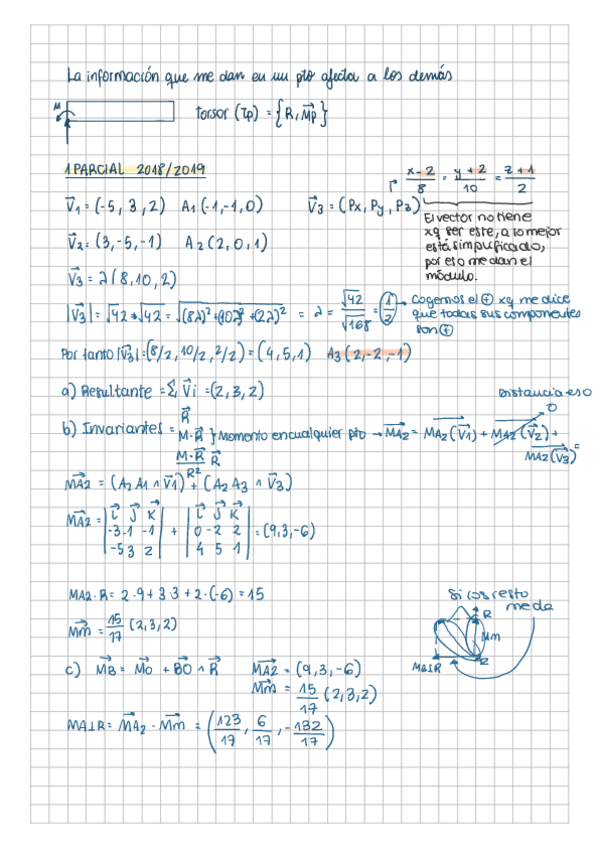 La información que me dan en un pto afecta a los demás
M
torsor (τp) = {R, M⃗p}
1 PARCIAL 2018/2019
x-2/8 = y+2/10 = z+1/2
V⃗1 = (-5, 3, 2) A1 (-1,-1,0) V⃗3 = (Px, Py, Pz)
El vector no tiene
xq ser este, a lo mejor
está simplificado,
por eso me dan el
módulo.
V⃗2 = (3,-5,-1) A2 (2, 0, 1)
V⃗3 = λ (8, 10, 2)
|V⃗3| = √42 → √42 = √(8λ)²+(10λ)²+(2λ)² = λ = √42/√168 = (1/2) → Cogemos el ⊕ xq me dice
que todas sus componentes
son ⊕
Por tanto |V⃗3| = (8/2, 10/2, 2/2) = (4, 5, 1) A3 (2,-2,-1)
a) Resultante = Σ V⃗i = (2, 3, 2)
Distancia es 0
0
b) Invariantes = R⃗
M·R⃗ } Momento en cualquier pto → M⃗A2 = MA2 (V⃗1) + MA2 (V⃗2) +
MA2 (V⃗3) =
M·R⃗/R² R⃗
M⃗A2 = (A2 A1 ∧ V⃗1) + (A2 A3 ∧ V⃗3)
M⃗A2 = | i⃗ j⃗ k⃗ | + | i⃗ j⃗ k⃗ | = (9, 3, -6)
| -3 -1 -1 | | 0 -2 2 |
| -5 3 2 | | 4 5 1 |
MA2·R = 2·9 + 3·3 + 2·(-6) = 15
M⃗m = 15/17 (2, 3, 2)
Si los resto
me da
R
Mm
MA⊥R
2
c) M⃗B = M⃗O + B⃗O ∧ R⃗ M⃗A2 = (9, 3, -6)
M⃗m = 15/17 (2, 3, 2)
MA⊥R = M⃗A2 - M⃗m = (123/17, 6/17, -132/17)